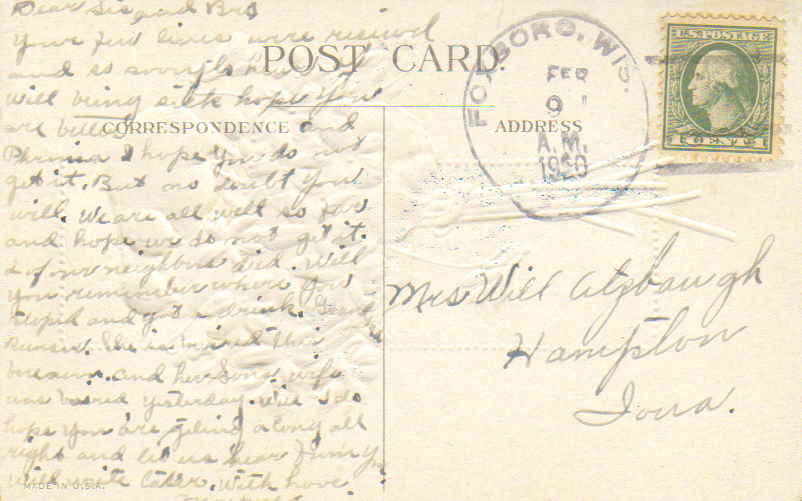 Dear Sis and Bro
Your few lines were received
and so sorry to hear
Will being sick hope you
are better and
I hope you do not
get it. But no doubt you
will. We are all well so far
and hope we do not get it.
2 of our neighbors died. Will
you remember where you
stoped and got a drink.
She is buried this
and her Sons wife
was buried yesterday. Will I do
hope you are getting along all
right and let us hear from you
will write later. With love
POST CARD.
CORRESPONDENCE
ADDRESS
MADE IN U.S.A.
FOXBORO, WIS.
FEB
9
A.M.
1920
U.S. POSTAGE
1 CENT 1
Mrs Will Atzbaugh
Hampton
Iowa.